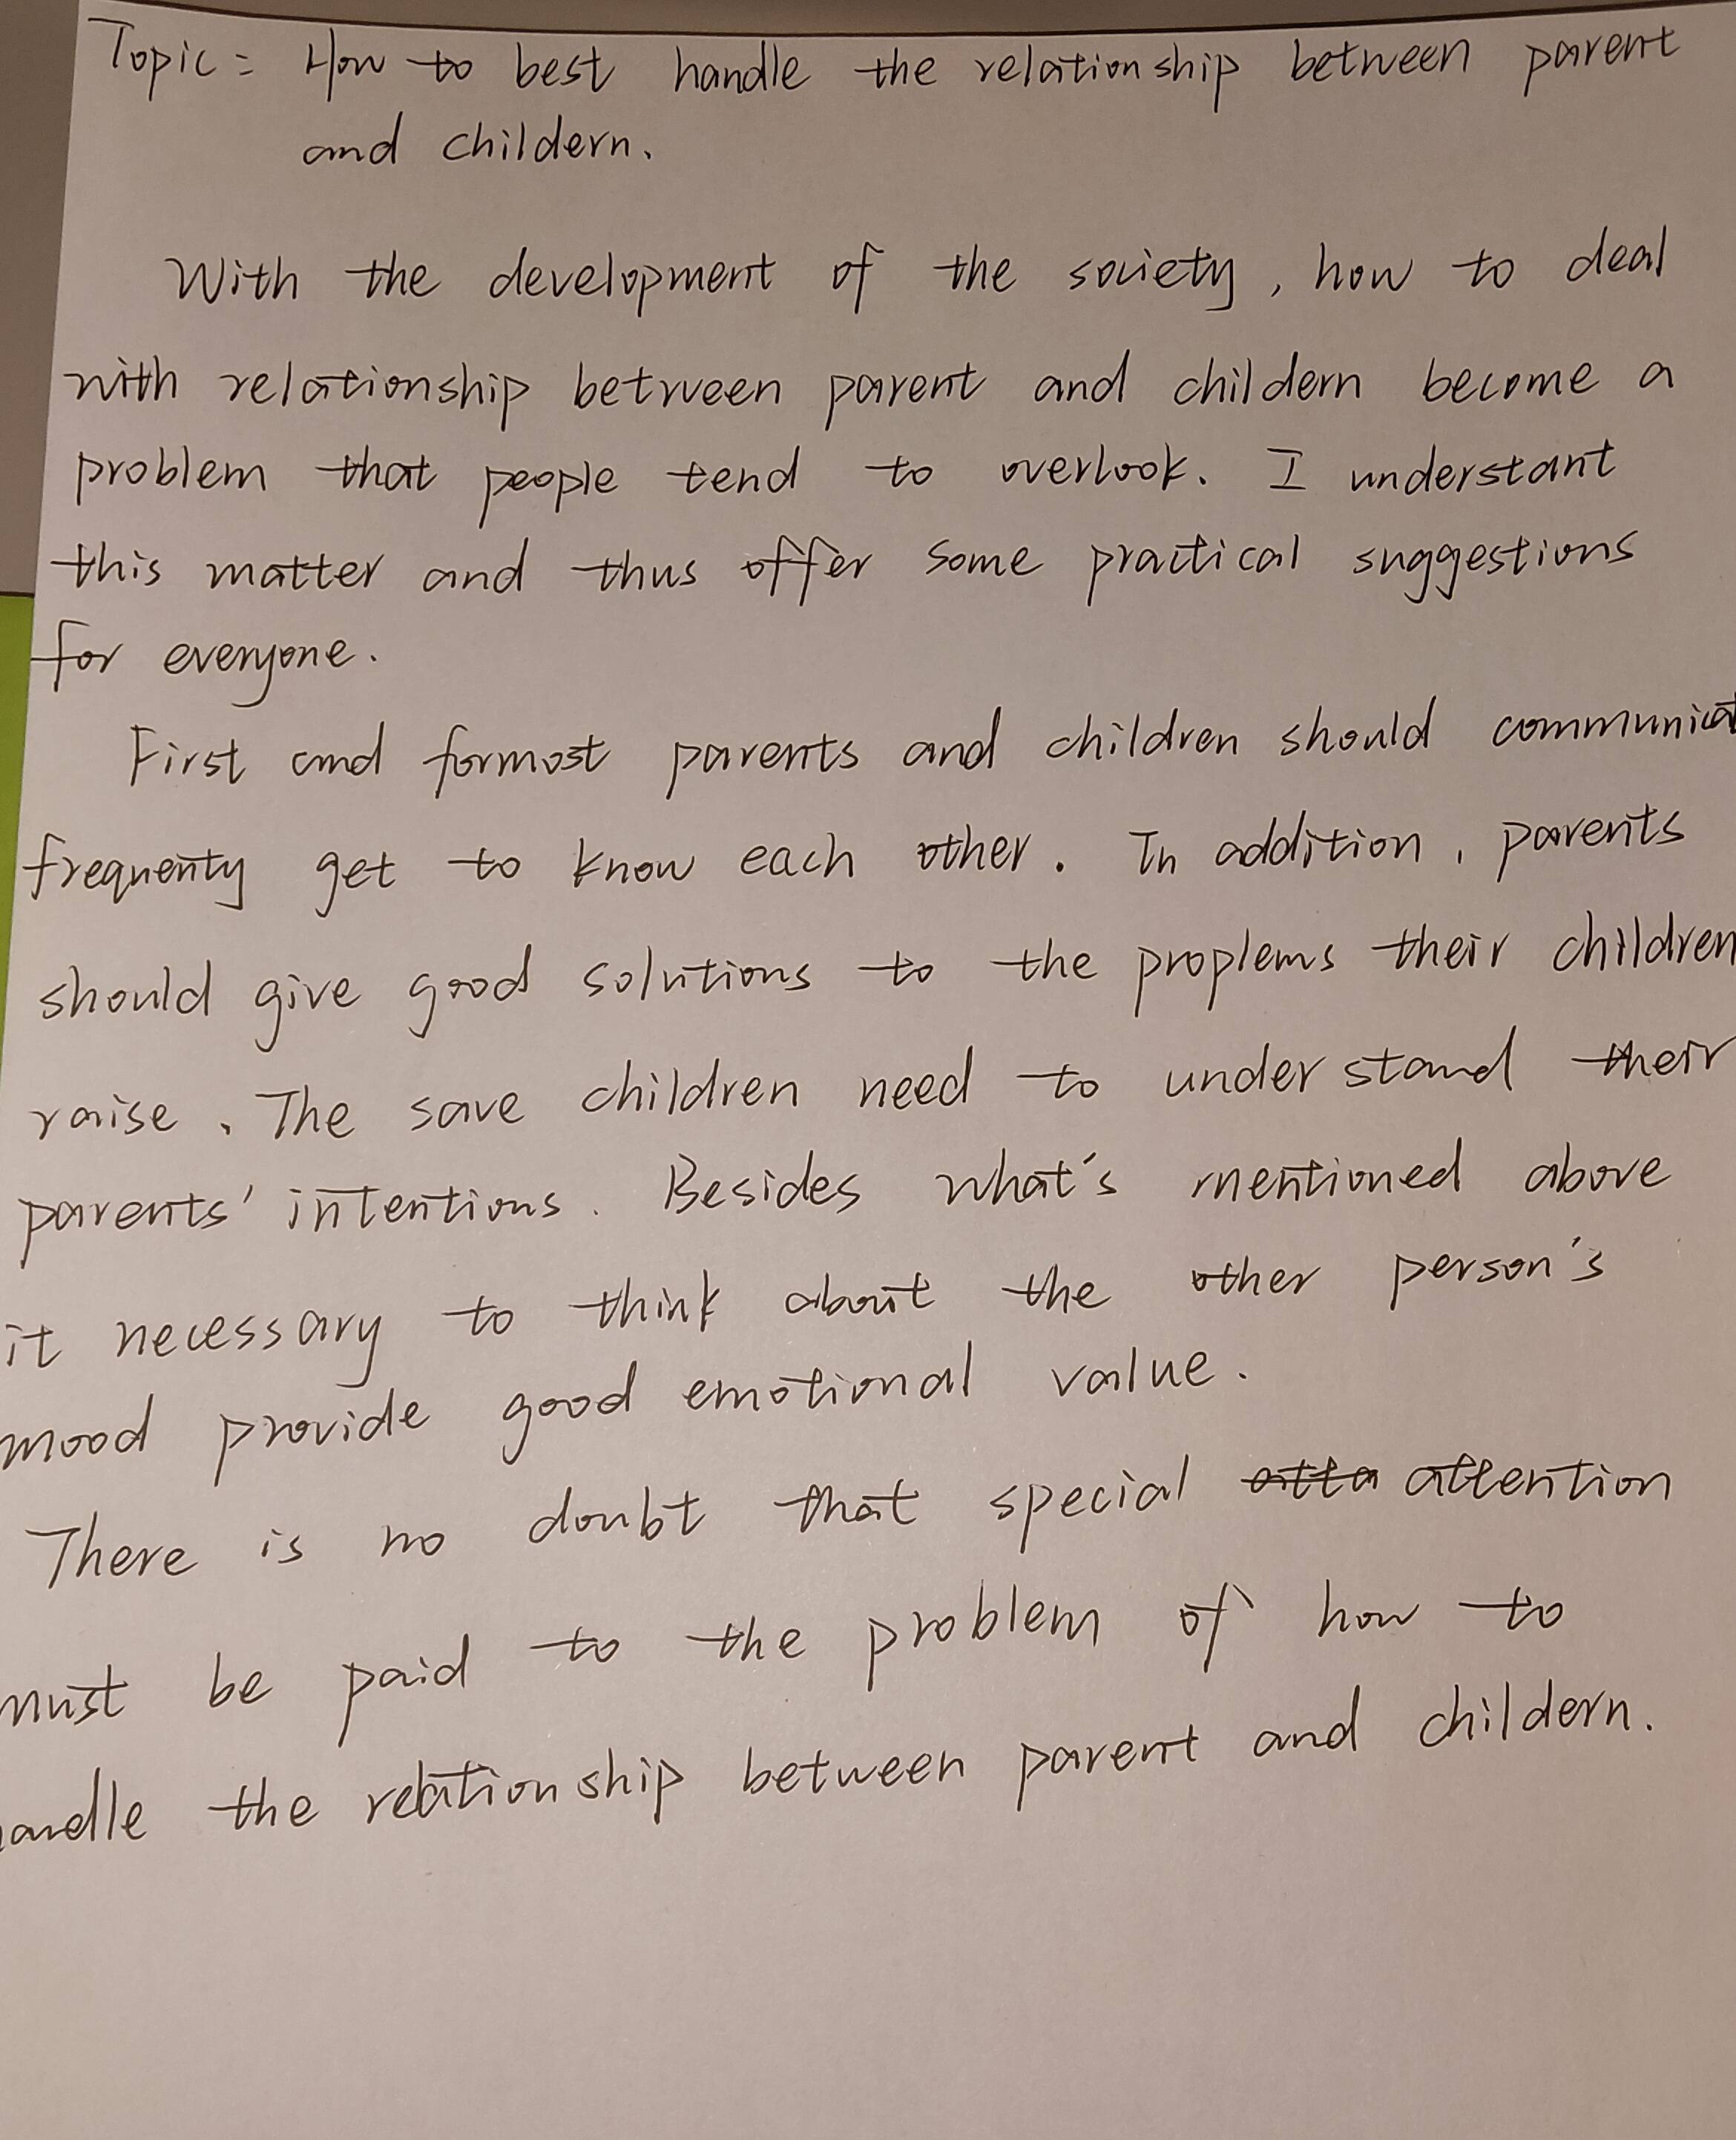 Topic: How to best handle the relationship between parent
and childern.
With the development of the society, how to deal
with relationship between parent and childern become a
problem that people tend to overlook. I understant
this matter and thus offer some practical suggestions
for everyone.
First and formost parents and children should communicat
frequenty get to know each other. In addition, parents
should give good solutions to the proplems their children
raise. The save children need to understand their
parents' intentions. Besides what's mentioned above
it necessary to think about the other person's
mood provide good emotional value.
There is no doubt that special atta attention
must be paid to the problem of how to
handle the relationship between parent and childern.